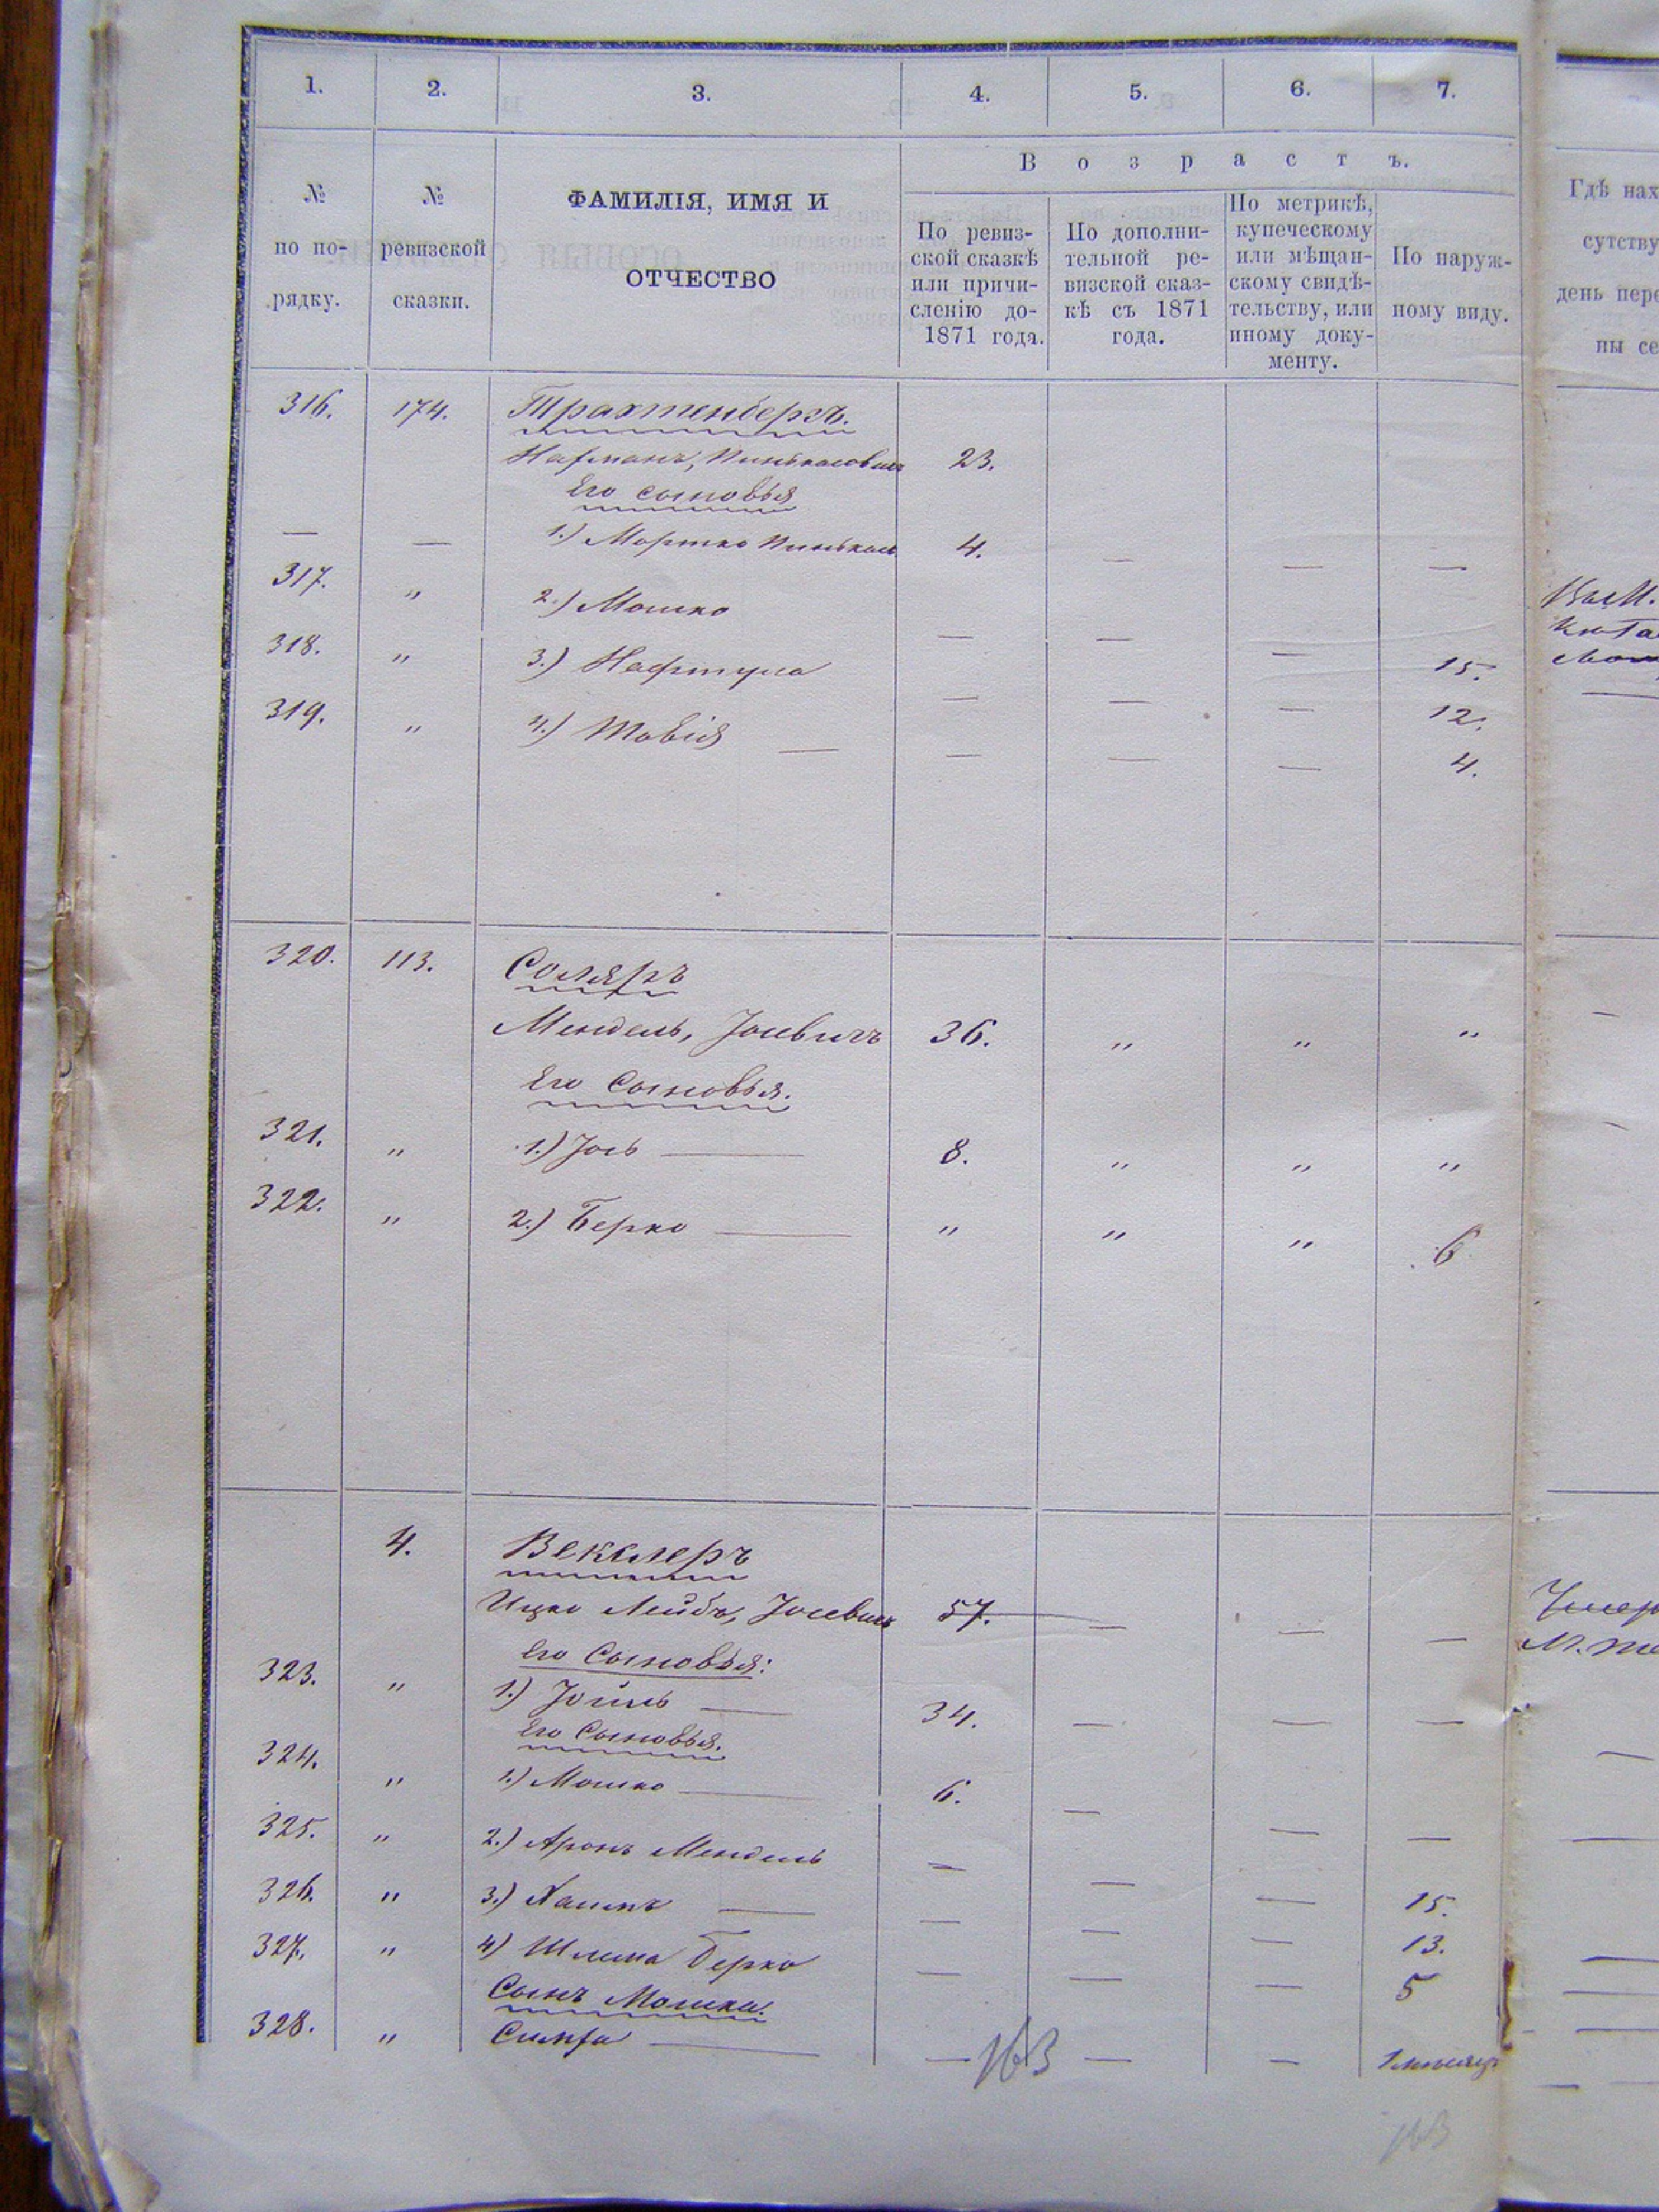 1. 2. 3. 4. 5. 6. 7.
В о з р а с т ъ.
№ по по-рядку.
№ ревизской сказки.
ФАМИЛІЯ, ИМЯ И
ОТЧЕСТВО
По ревиз-
ской сказкѣ
или причи-
сленію до-
1871 года.
По дополни-
тельной ре-
визской сказ-
кѣ съ 1871
года.
По метрикѣ,
купеческому
или мѣщан-
скому свидѣ-
тельству, или
иному доку-
менту.
По наруж-
ному виду.
Гдѣ нах
сутству
день пере
ны се
316. 174. Трахтенбергъ.
23.
Его сыновья
— — 1.) Мортко Пинькас 4. — — —
317. " 2.) Мошко — — — 15.
318. " 3.) Нафтула — — — 12.
319. " 4.) Товія — — — — 4.
320. 113. Соляръ
Мендель, Іосевичъ 36. " " "
Его Сыновья.
321. " 1.) Іось — 8. " " "
322. " 2.) Берко — " " " 6
4. Векслеръ
Ицко Лейбъ, Іосевичъ 57. — — —
Его Сыновья:
323. " 1.) Іойль — 34. — — —
Его Сыновья.
324. " 1.) Мошко — 6. — — —
325. " 2.) Аронъ Мендель — — — 15.
326. " 3.) Хаимъ — — — — 13.
327. " 4) Шлема Берко — — — 5
Сынъ Мошки.
328. " Симха — — — — 1 мѣсяцъ
163
163